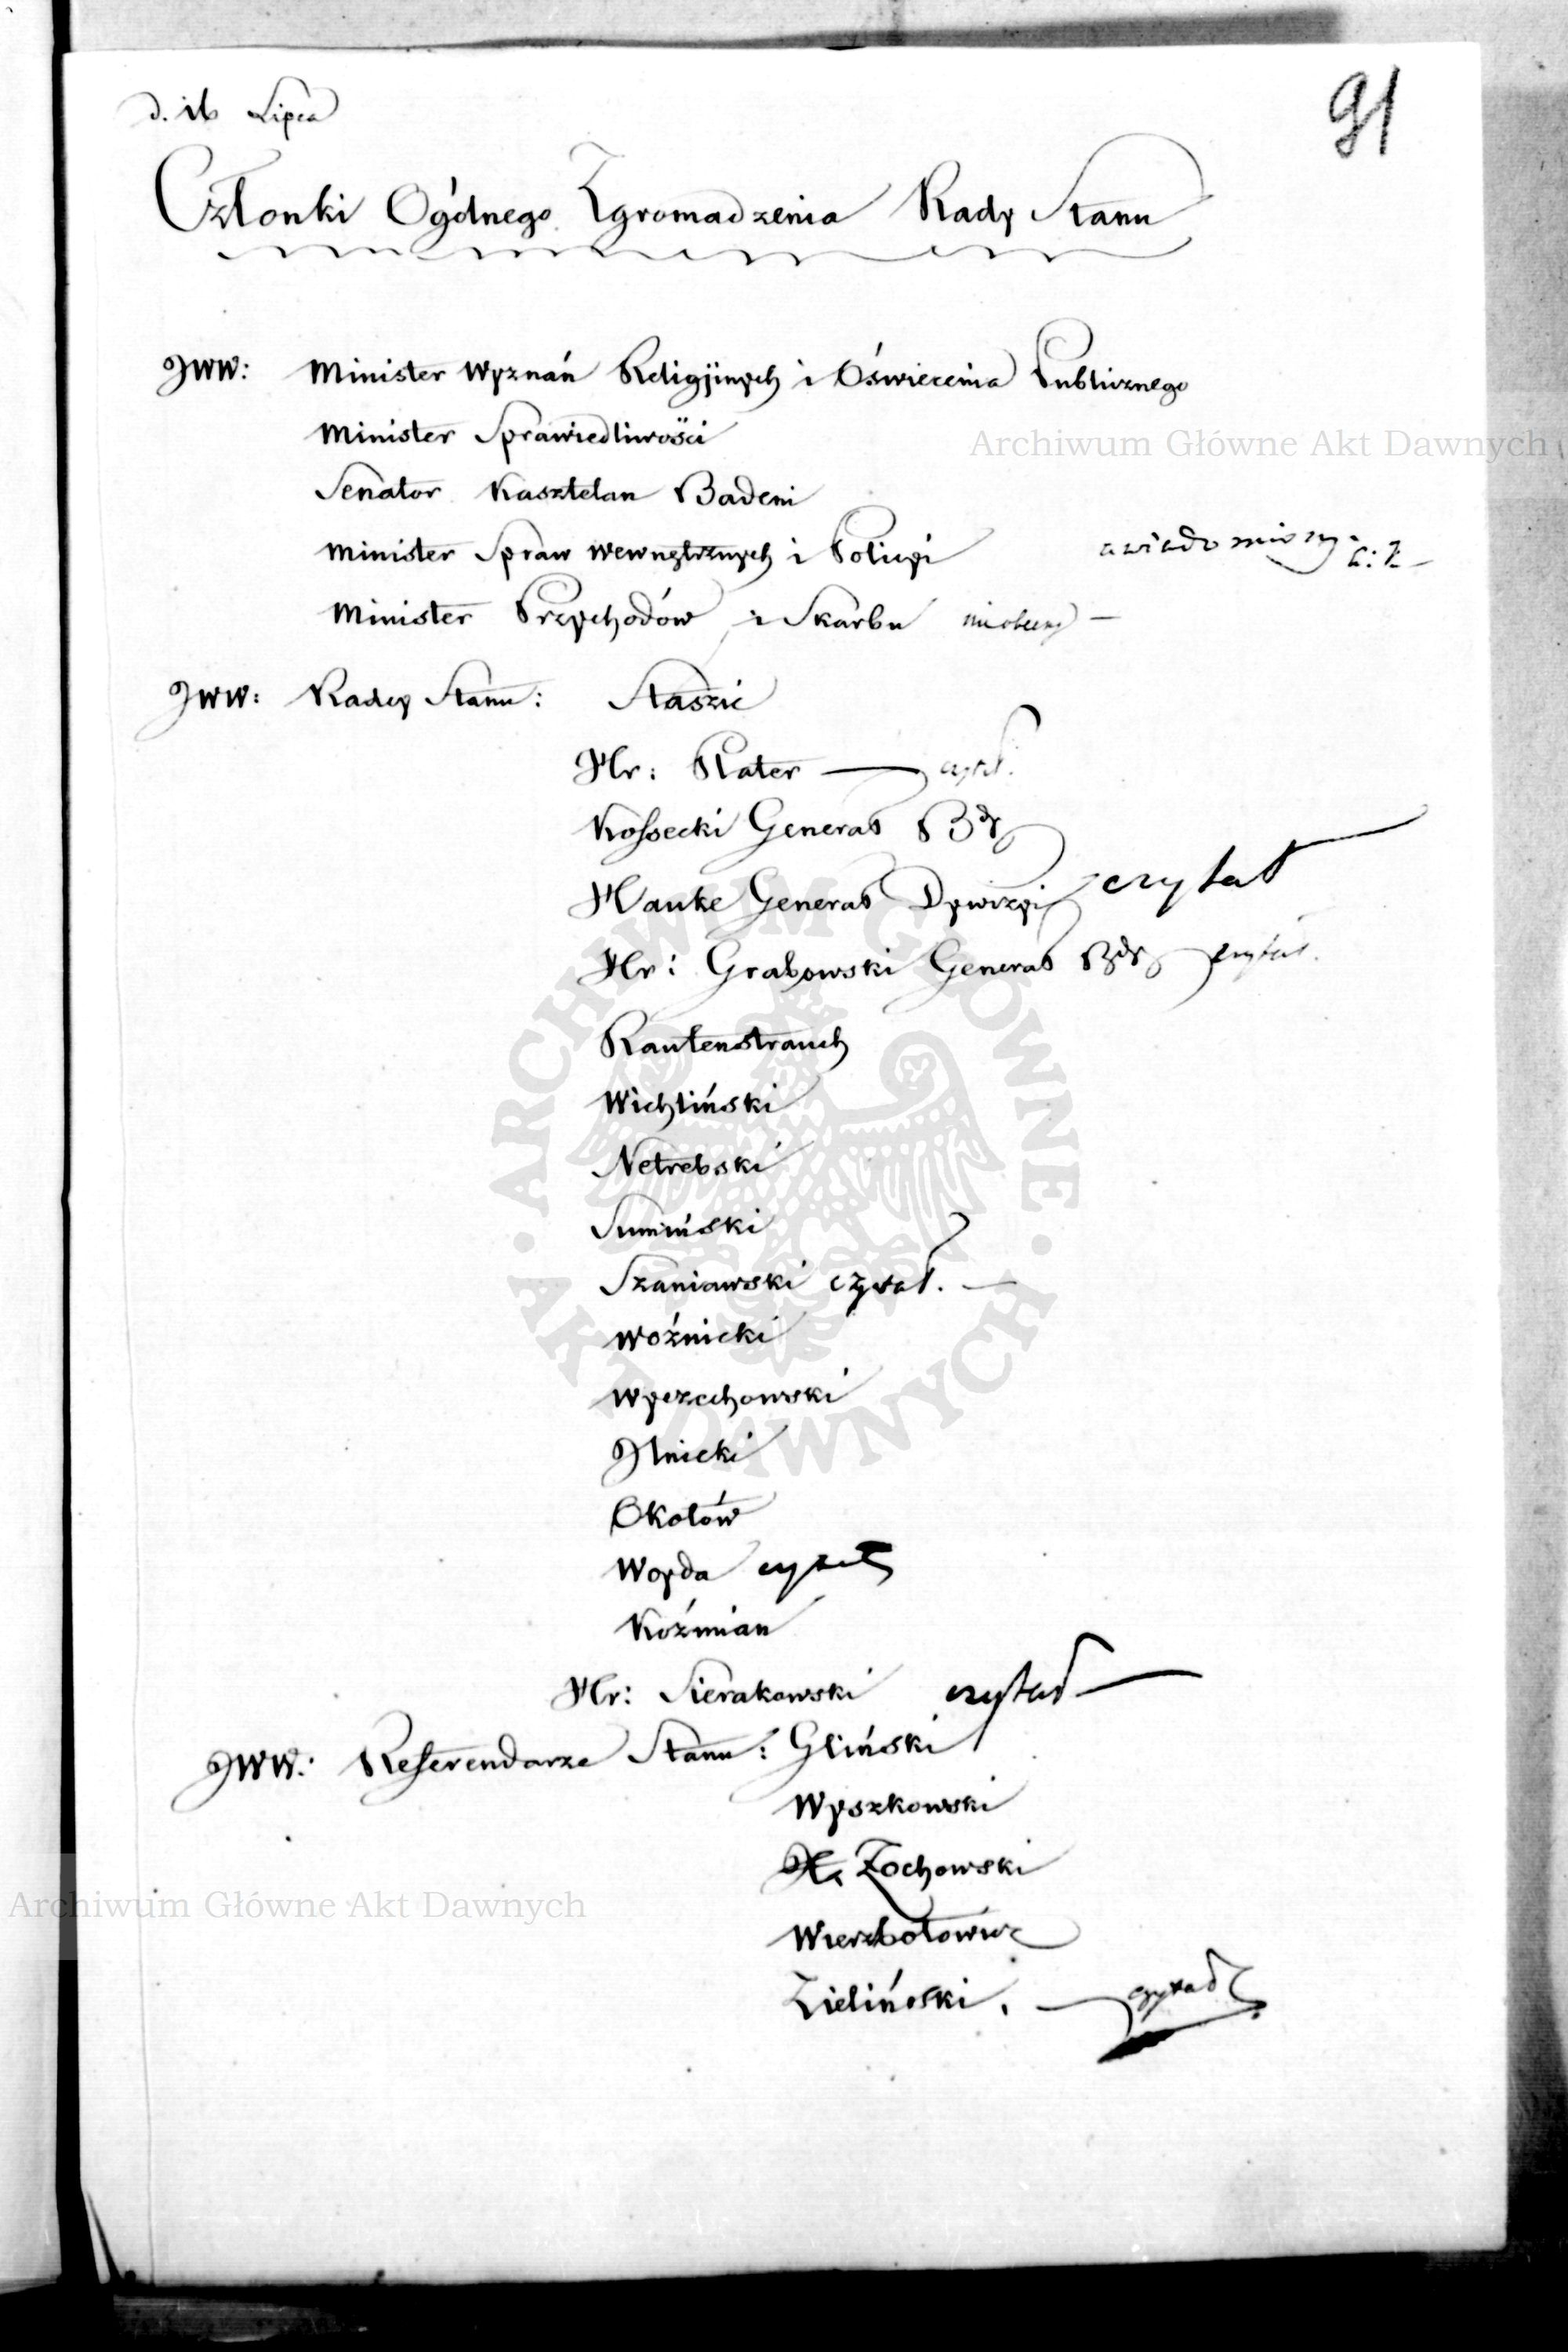 91
d. 16 Lipca
Członki Ogólnego Zgromadzenia Rady Stanu
JWW: Minister Wyznań Religijnych i Oświecenia Publicznego
Minister Sprawiedliwości
Archiwum Główne Akt Dawnych
Senator Kasztelan Badeni
Minister Spraw Wewnętrznych i Policyi uwiadomiony
Minister Przychodów i Skarbu nieobecny —
JWW: Radcy Stanu: Staszic
Hr: Plater — czytał.
Kossecki Generał Bdy
Hauke Generał Dywizyi czytał
Hr: Grabowski Generał Bdy czytał.
Rautenstrauch
Wichliński
Netrebski
Sumiński
Szaniawski czytał. —
Woźnicki
Wyczechowski
Ilnicki
Okołów
Woyda czytał
Koźmian
Hr: Sierakowski czytał —
JWW: Referendarze Stanu: Gliński
Wyszkowski
X. Żochowski
Archiwum Główne Akt Dawnych
Wierzbołowicz
Zieliński. — czytał
ARCHIWUM GŁÓWNE · AKT DAWNYCH ·